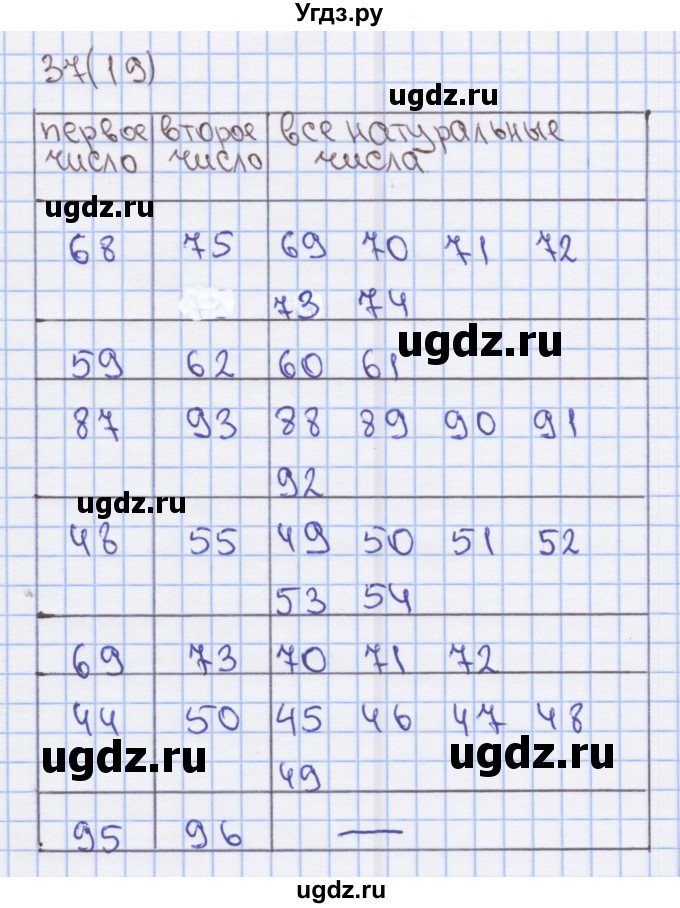 Угдз.ру
37(19)
ugdz.ru
первое второе все натуральные
число число числа
ugdz.ru
68 75 69 70 71 72
73 74
ugdz.ru
59 62 60 61
87 93 88 89 90 91
92
ugdz.ru
48 55 49 50 51 52
53 54
69 73 70 71 72
44 50 45 46 47 48
ugdz.ru
ugdz.ru
49
95 96 —
ugdz.ru